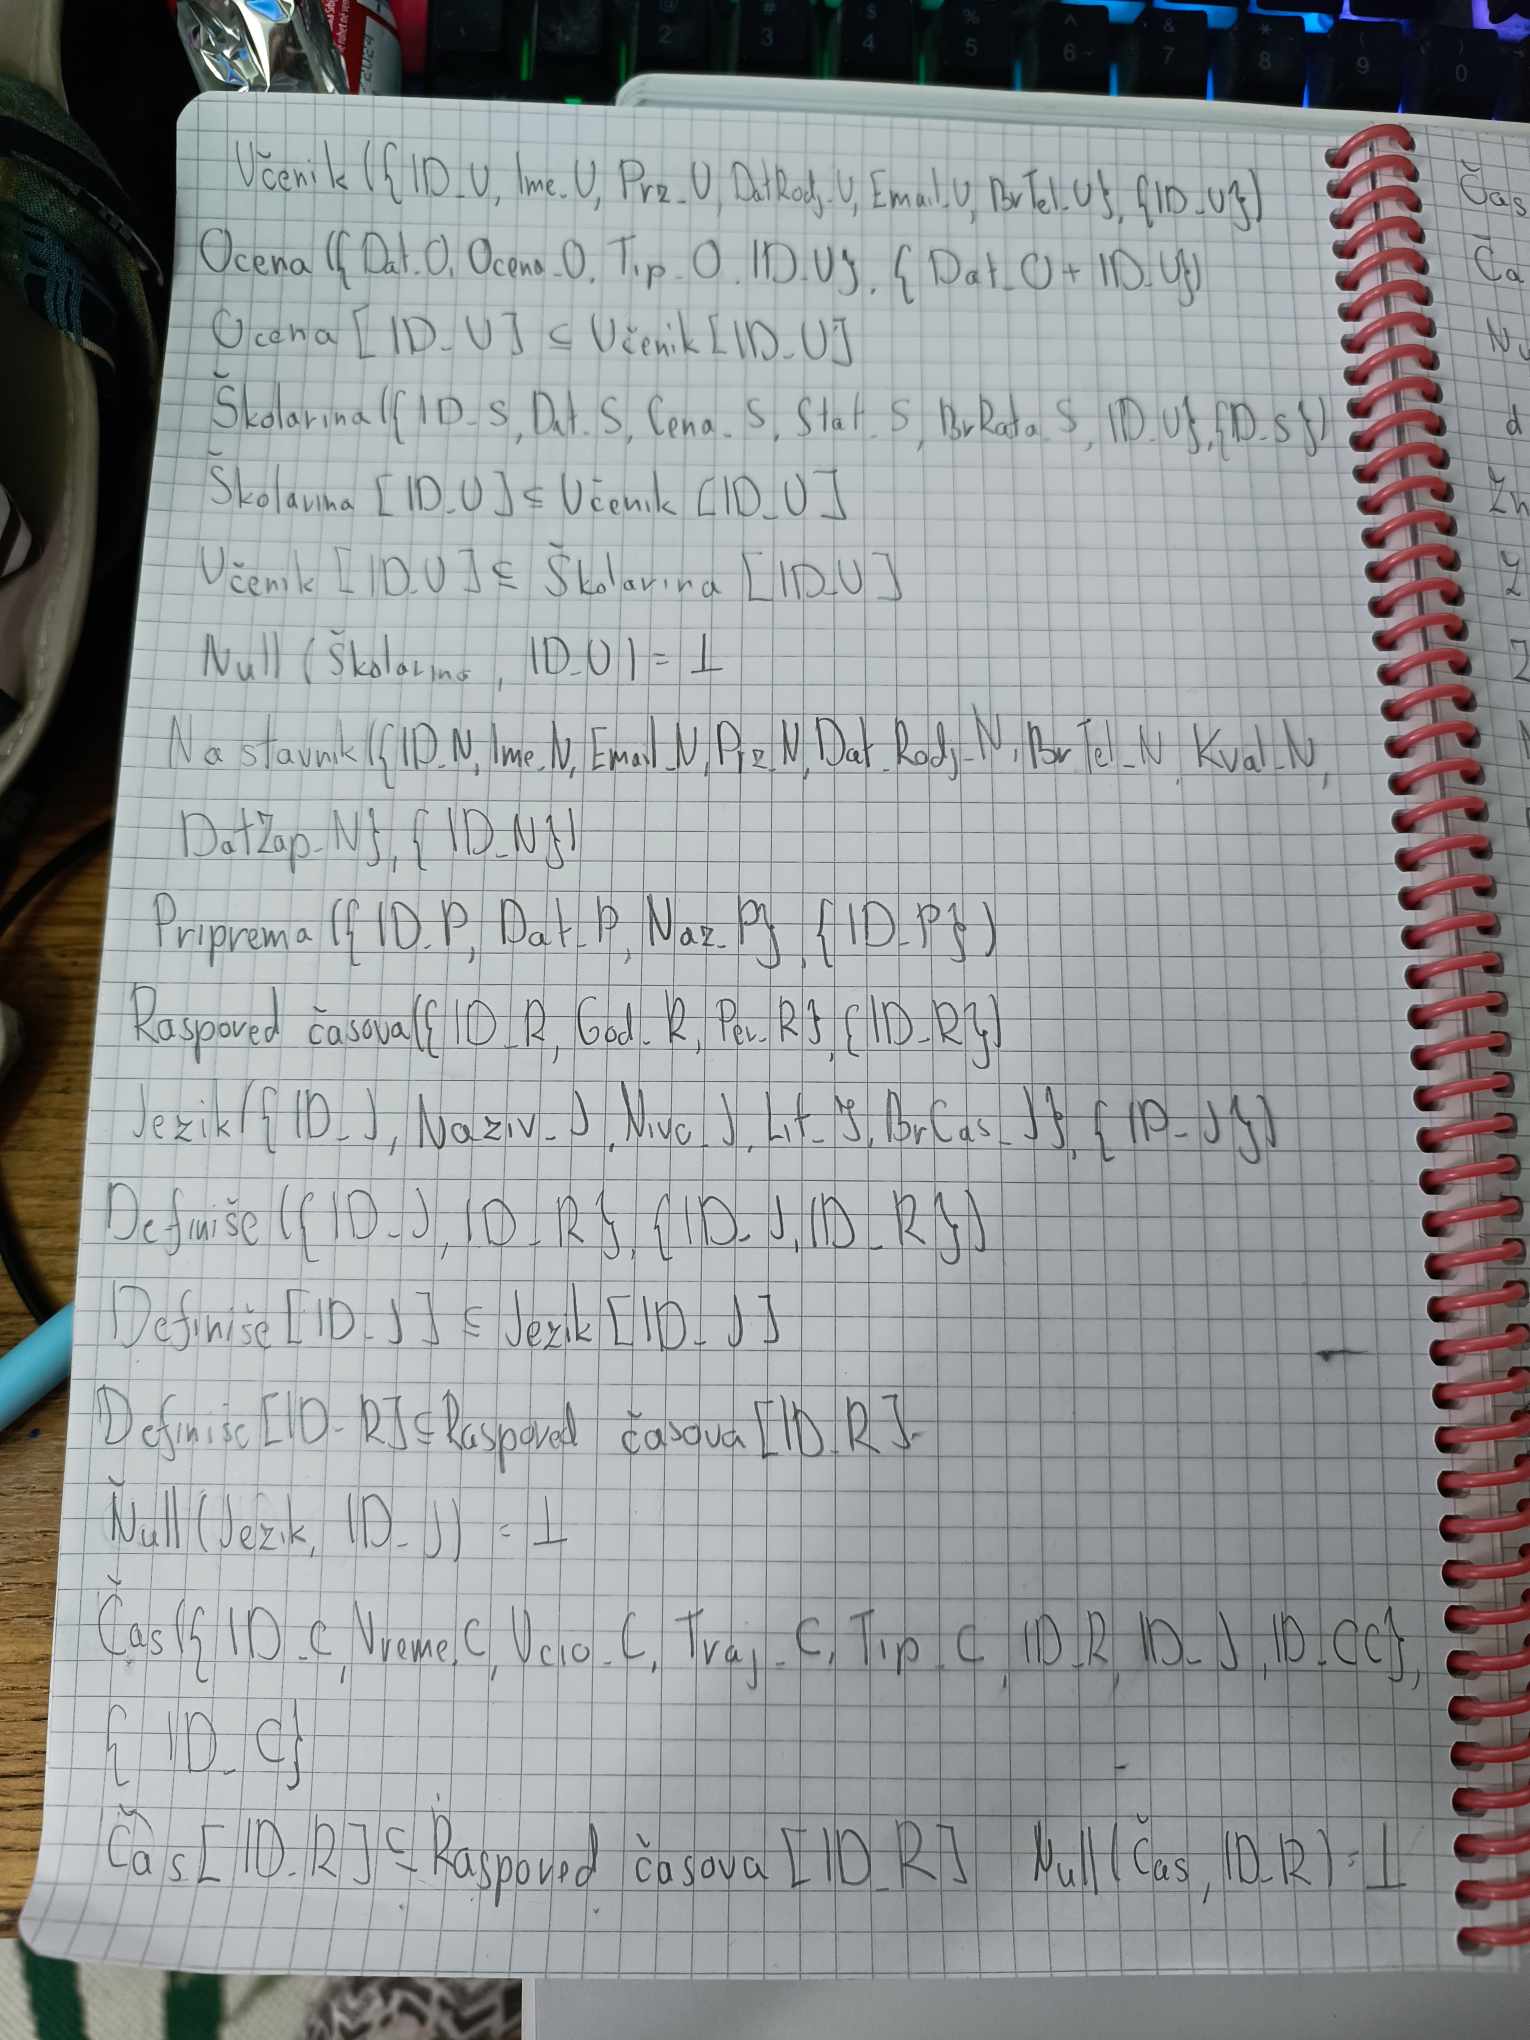 Učenik ({ID_U, Ime_U, Prz_U, DatRodj_U, Email_U, BrTel_U}, {ID_U})
Ocena ({Dat_O, Ocena_O, Tip_O, ID_U}, {Dat_O + ID_U})
Ocena [ID_U] ⊆ Učenik [ID_U]
Školarina ({ID_S, Dat_S, Cena_S, Stat_S, BrRata_S, ID_U}, {ID_S})
Školarina [ID_U] ⊆ Učenik [ID_U]
Učenik [ID_U] ⊆ Školarina [ID_U]
Null (Školarina, ID_U) = ⊥
Nastavnik ({ID_N, Ime_N, Email_N, Prz_N, Dat_Rodj_N, BrTel_N, Kval_N,
DatZap_N}, {ID_N})
Priprema ({ID_P, Dat_P, Naz_P}, {ID_P})
Raspored časova ({ID_R, God_R, Per_R}, {ID_R})
Jezik ({ID_J, Naziv_J, Nivo_J, Lit_J, BrCas_J}, {ID_J})
Definiše ({ID_J, ID_R}, {ID_J, ID_R})
Definiše [ID_J] ⊆ Jezik [ID_J]
Definiše [ID_R] ⊆ Raspored časova [ID_R]
Null (Jezik, ID_J) = ⊥
Čas ({ID_C, Vreme_C, Ucio_C, Traj_C, Tip_C, ID_R, ID_J, ID_CC},
{ID_C}
Čas [ID_R] ⊆ Raspored časova [ID_R] Null (Čas, ID_R) = ⊥
Čas
Ča
2024
2
3
4
5
6
7
8
9
0